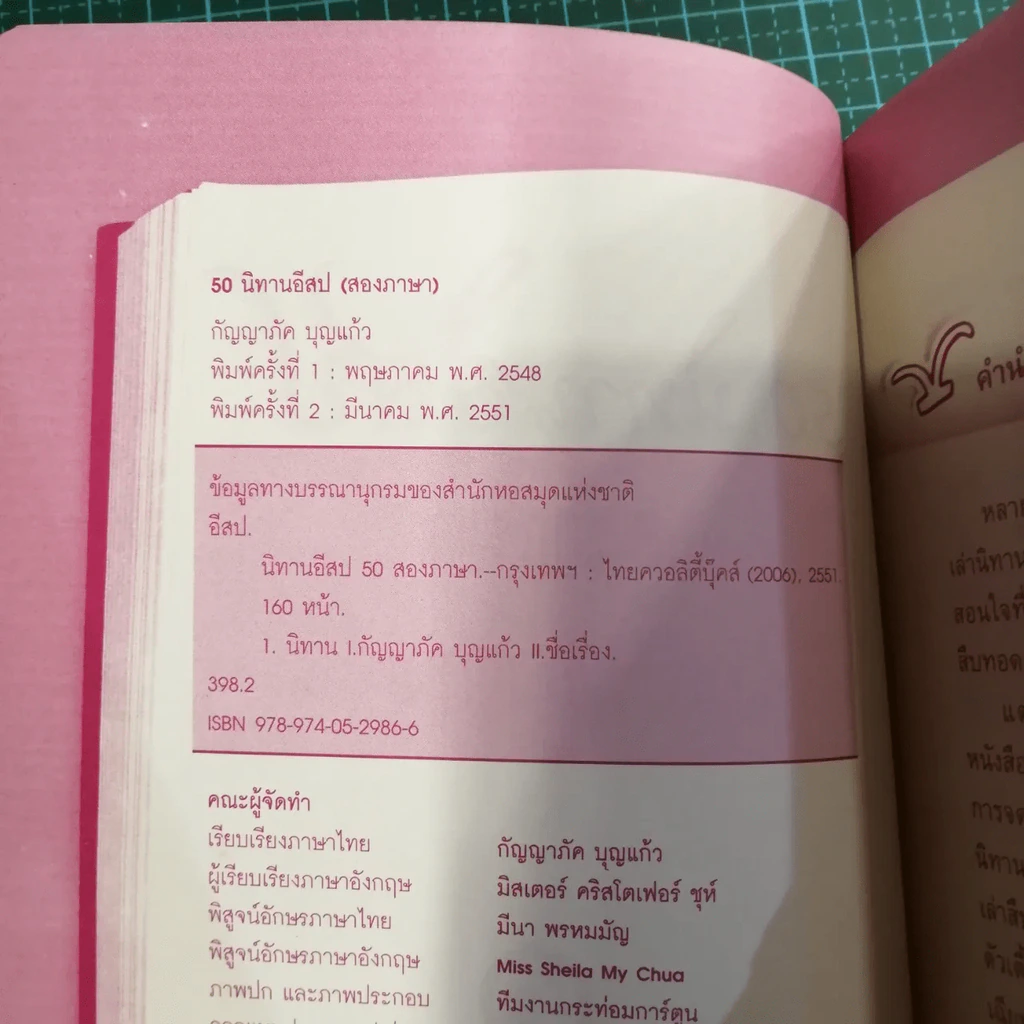 50 นิทานอีสป (สองภาษา)
กัญญาภัค บุญแก้ว
พิมพ์ครั้งที่ 1 : พฤษภาคม พ.ศ. 2548
พิมพ์ครั้งที่ 2 : มีนาคม พ.ศ. 2551
ข้อมูลทางบรรณานุกรมของสำนักหอสมุดแห่งชาติ
อีสป.
นิทานอีสป 50 สองภาษา.--กรุงเทพฯ : ไทยควอลิตี้บุ๊คส์ (2006), 2551.
160 หน้า.
1. นิทาน I.กัญญาภัค บุญแก้ว II.ชื่อเรื่อง.
398.2
ISBN 978-974-05-2986-6
คณะผู้จัดทำ
เรียบเรียงภาษาไทย กัญญาภัค บุญแก้ว
ผู้เรียบเรียงภาษาอังกฤษ มิสเตอร์ คริสโตเฟอร์ ชุห์
พิสูจน์อักษรภาษาไทย มีนา พรหมมัญ
พิสูจน์อักษรภาษาอังกฤษ Miss Sheila My Chua
ภาพปก และภาพประกอบ ทีมงานกระท่อมการ์ตูน
หลาย
เล่านิทาน
สอนใจที่
สืบทอด
หนังสือ
นิทาน